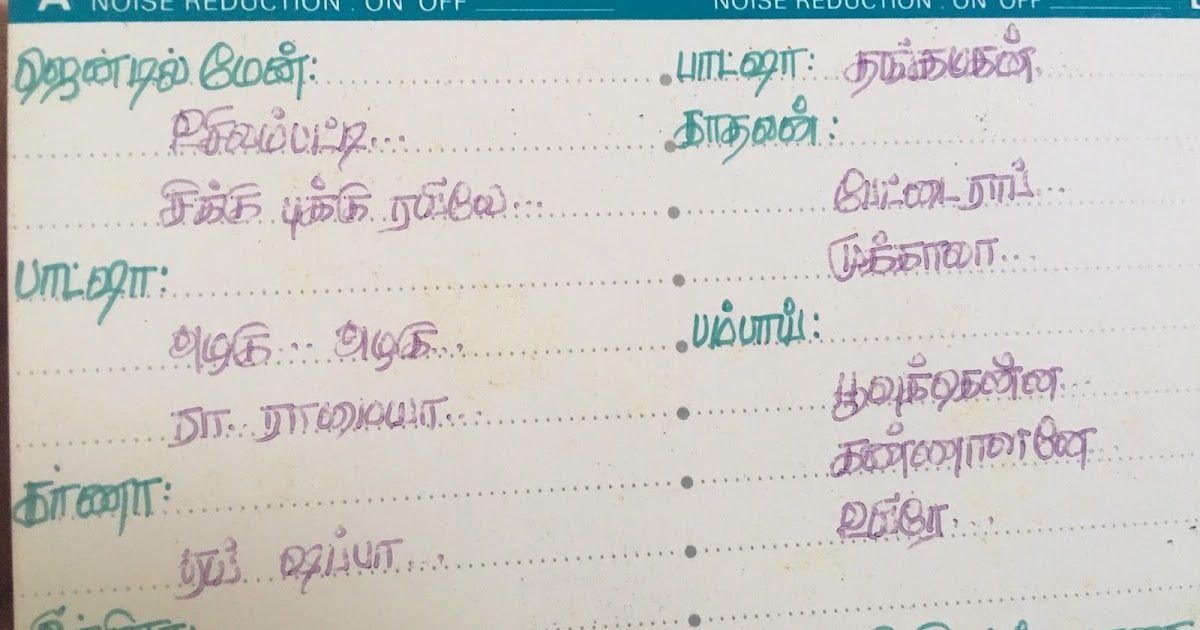 A NOISE REDUCTION : ON OFF
ஜென்டில் மேன்:
உசிலம்பட்டி...
சிக்கு புக்கு ரயிலே...
பாட்ஷா:
அழகு... அழகு...
நா.. ராமையா...
கர்ணா:
ஏய் ஷப்பா...
NOISE REDUCTION : ON OFF
பாட்ஷா: தங்கமகன்
காதலன்:
பேட்டை ராப்...
முக்காலா...
பம்பாய்:
பூவுக்கென்ன...
கண்ணாளனே
உயிரே...